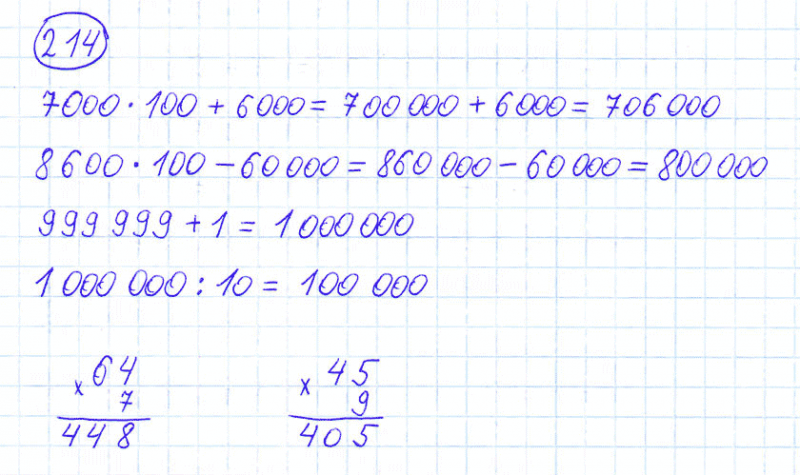 214
7000 · 100 + 6000 = 700 000 + 6000 = 706 000
8600 · 100 - 60 000 = 860 000 - 60 000 = 800 000
999 999 + 1 = 1 000 000
1 000 000 : 10 = 100 000
x 64 x 45
7 9
448 405